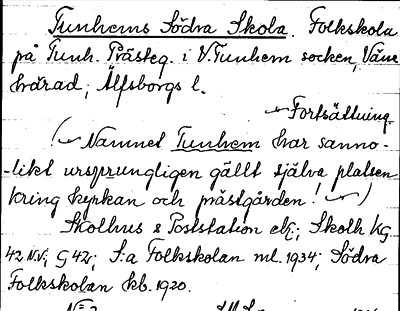 Tunhems Södra Skola. Folkskola
på Tunh. Prästeg. i V. Tunhem socken, Väne
härad, Älfsborgs l.
Fortsättning.
(Namnet Tunhem har sanno-
-likt ursprungligen gällt själva platsen
kring kyrkan och prästgården! )
Skolhus & Poststation ek.; Skolh kg
42 N.V; G 42; S:a Folkskolan ml. 1934; Södra
Folkskolan kb. 1920.